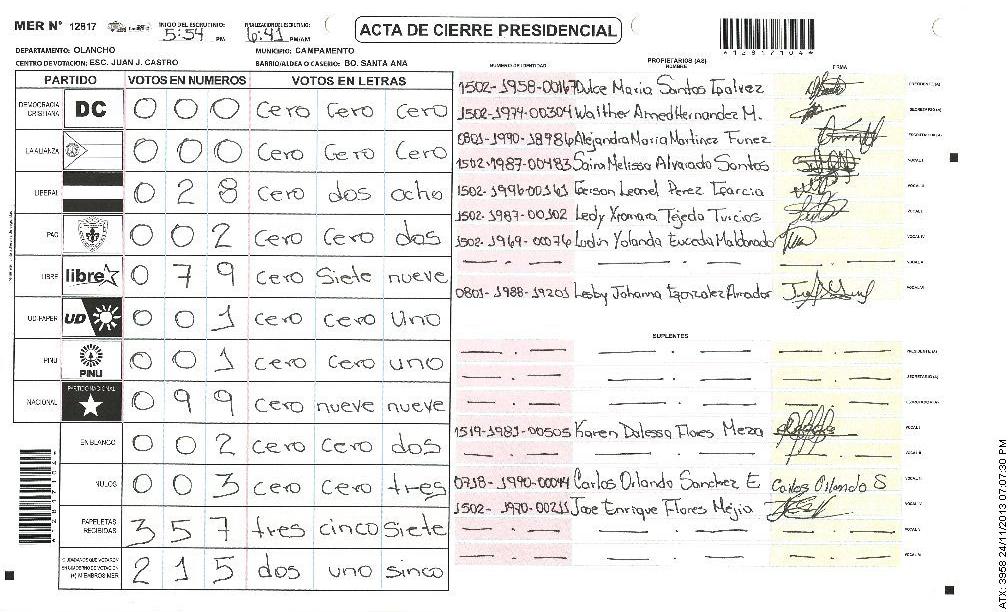 MER N° 12817 INICIO DEL ESCRUTINIO: 5:54 PM FINALIZACION DEL ESCRUTINIO: 6:41 PM/AM ACTA DE CIERRE PRESIDENCIAL *12817104*
DEPARTAMENTO: OLANCHO MUNICIPIO: CAMPAMENTO
CENTRO DE VOTACION: ESC. JUAN J. CASTRO BARRIO/ALDEA O CASERIO: BO. SANTA ANA
PARTIDO VOTOS EN NUMEROS VOTOS EN LETRAS
DEMOCRACIA CRISTIANA DC 0 0 0 cero cero cero
LA ALIANZA 0 0 0 cero cero cero
LIBERAL 0 2 8 cero dos ocho
PAC 0 0 2 cero cero dos
LIBRE libre 0 7 9 cero siete nueve
UD-FAPER UD 0 0 1 cero cero uno
PINU PINU 0 0 1 cero cero uno
NACIONAL PARTIDO NACIONAL 0 9 9 cero nueve nueve
EN BLANCO 0 0 2 cero cero dos
NULOS 0 0 3 cero cero tres
PAPELETAS RECIBIDAS 3 5 7 tres cinco siete
CIUDADANOS QUE VOTARON EN CUADERNO DE VOTACION (+) MIEMBROS MER 2 1 5 dos uno sinco
PROPIETARIOS (AS)
NUMERO DE IDENTIDAD NOMBRE FIRMA
1502-1958-00167 Dulce Maria Santos Galvez PRESIDENTE (A)
1502-1974-00304 Walther Amed Hernandez M. SECRETARIO (A)
0801-1990-18986 Alejandra Maria Martinez Funez ESCRUTADOR (A)
1502-1987-00483 Saira Melissa Alvarado Santos VOCAL I
1502-1996-00161 Gerson Leonel Perez Garcia VOCAL II
1502-1987-00102 Ledy Xiomara Tejeda Turcios VOCAL III
1502-1969-00076 Yolanda Euceda Maldonado VOCAL IV
VOCAL V
0801-1988-19201 Lesby Johanna Gonzalez Amador VOCAL VI
SUPLENTES
PRESIDENTE (A)
SECRETARIO (A)
ESCRUTADOR (A)
1519-1981-00505 Karen Dalessa Flores Meza VOCAL I
VOCAL II
0718-1990-00044 Carlos Orlando Sanchez E Carlos Orlando S VOCAL III
1502-1970-00211 Jose Enrique Flores Mejia VOCAL IV
VOCAL V
VOCAL VI
ATX: 3958 24/11/2013 07:07:30 PM